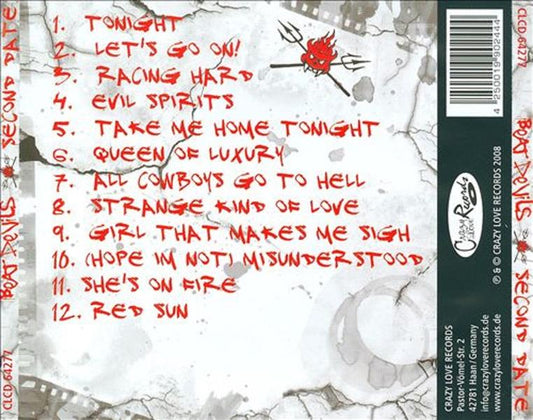 1. TONIGHT
2. LET'S GO ON!
3. RACING HARD
4. EVIL SPIRITS
5. TAKE ME HOME TONIGHT
6. QUEEN OF LUXURY
7. ALL COWBOYS GO TO HELL
8. STRANGE KIND OF LOVE
9. GIRL THAT MAKES ME SIGH
10. (HOPE IM NOT) MISUNDERSTOOD
11. SHE'S ON FIRE
12. RED SUN
CLCD 64277 BOAT DEVILS SECOND DATE
4 250019 902444
Crazy Love Records
℗ & © CRAZY LOVE RECORDS 2008
CRAZY LOVE RECORDS
Pastor-Vömel-Str. 2
42781 Haan/Germany
info@crazyloverecords.de
www.crazyloverecords.de
CLCD-64277 BOAT DEVILS SECOND DATE